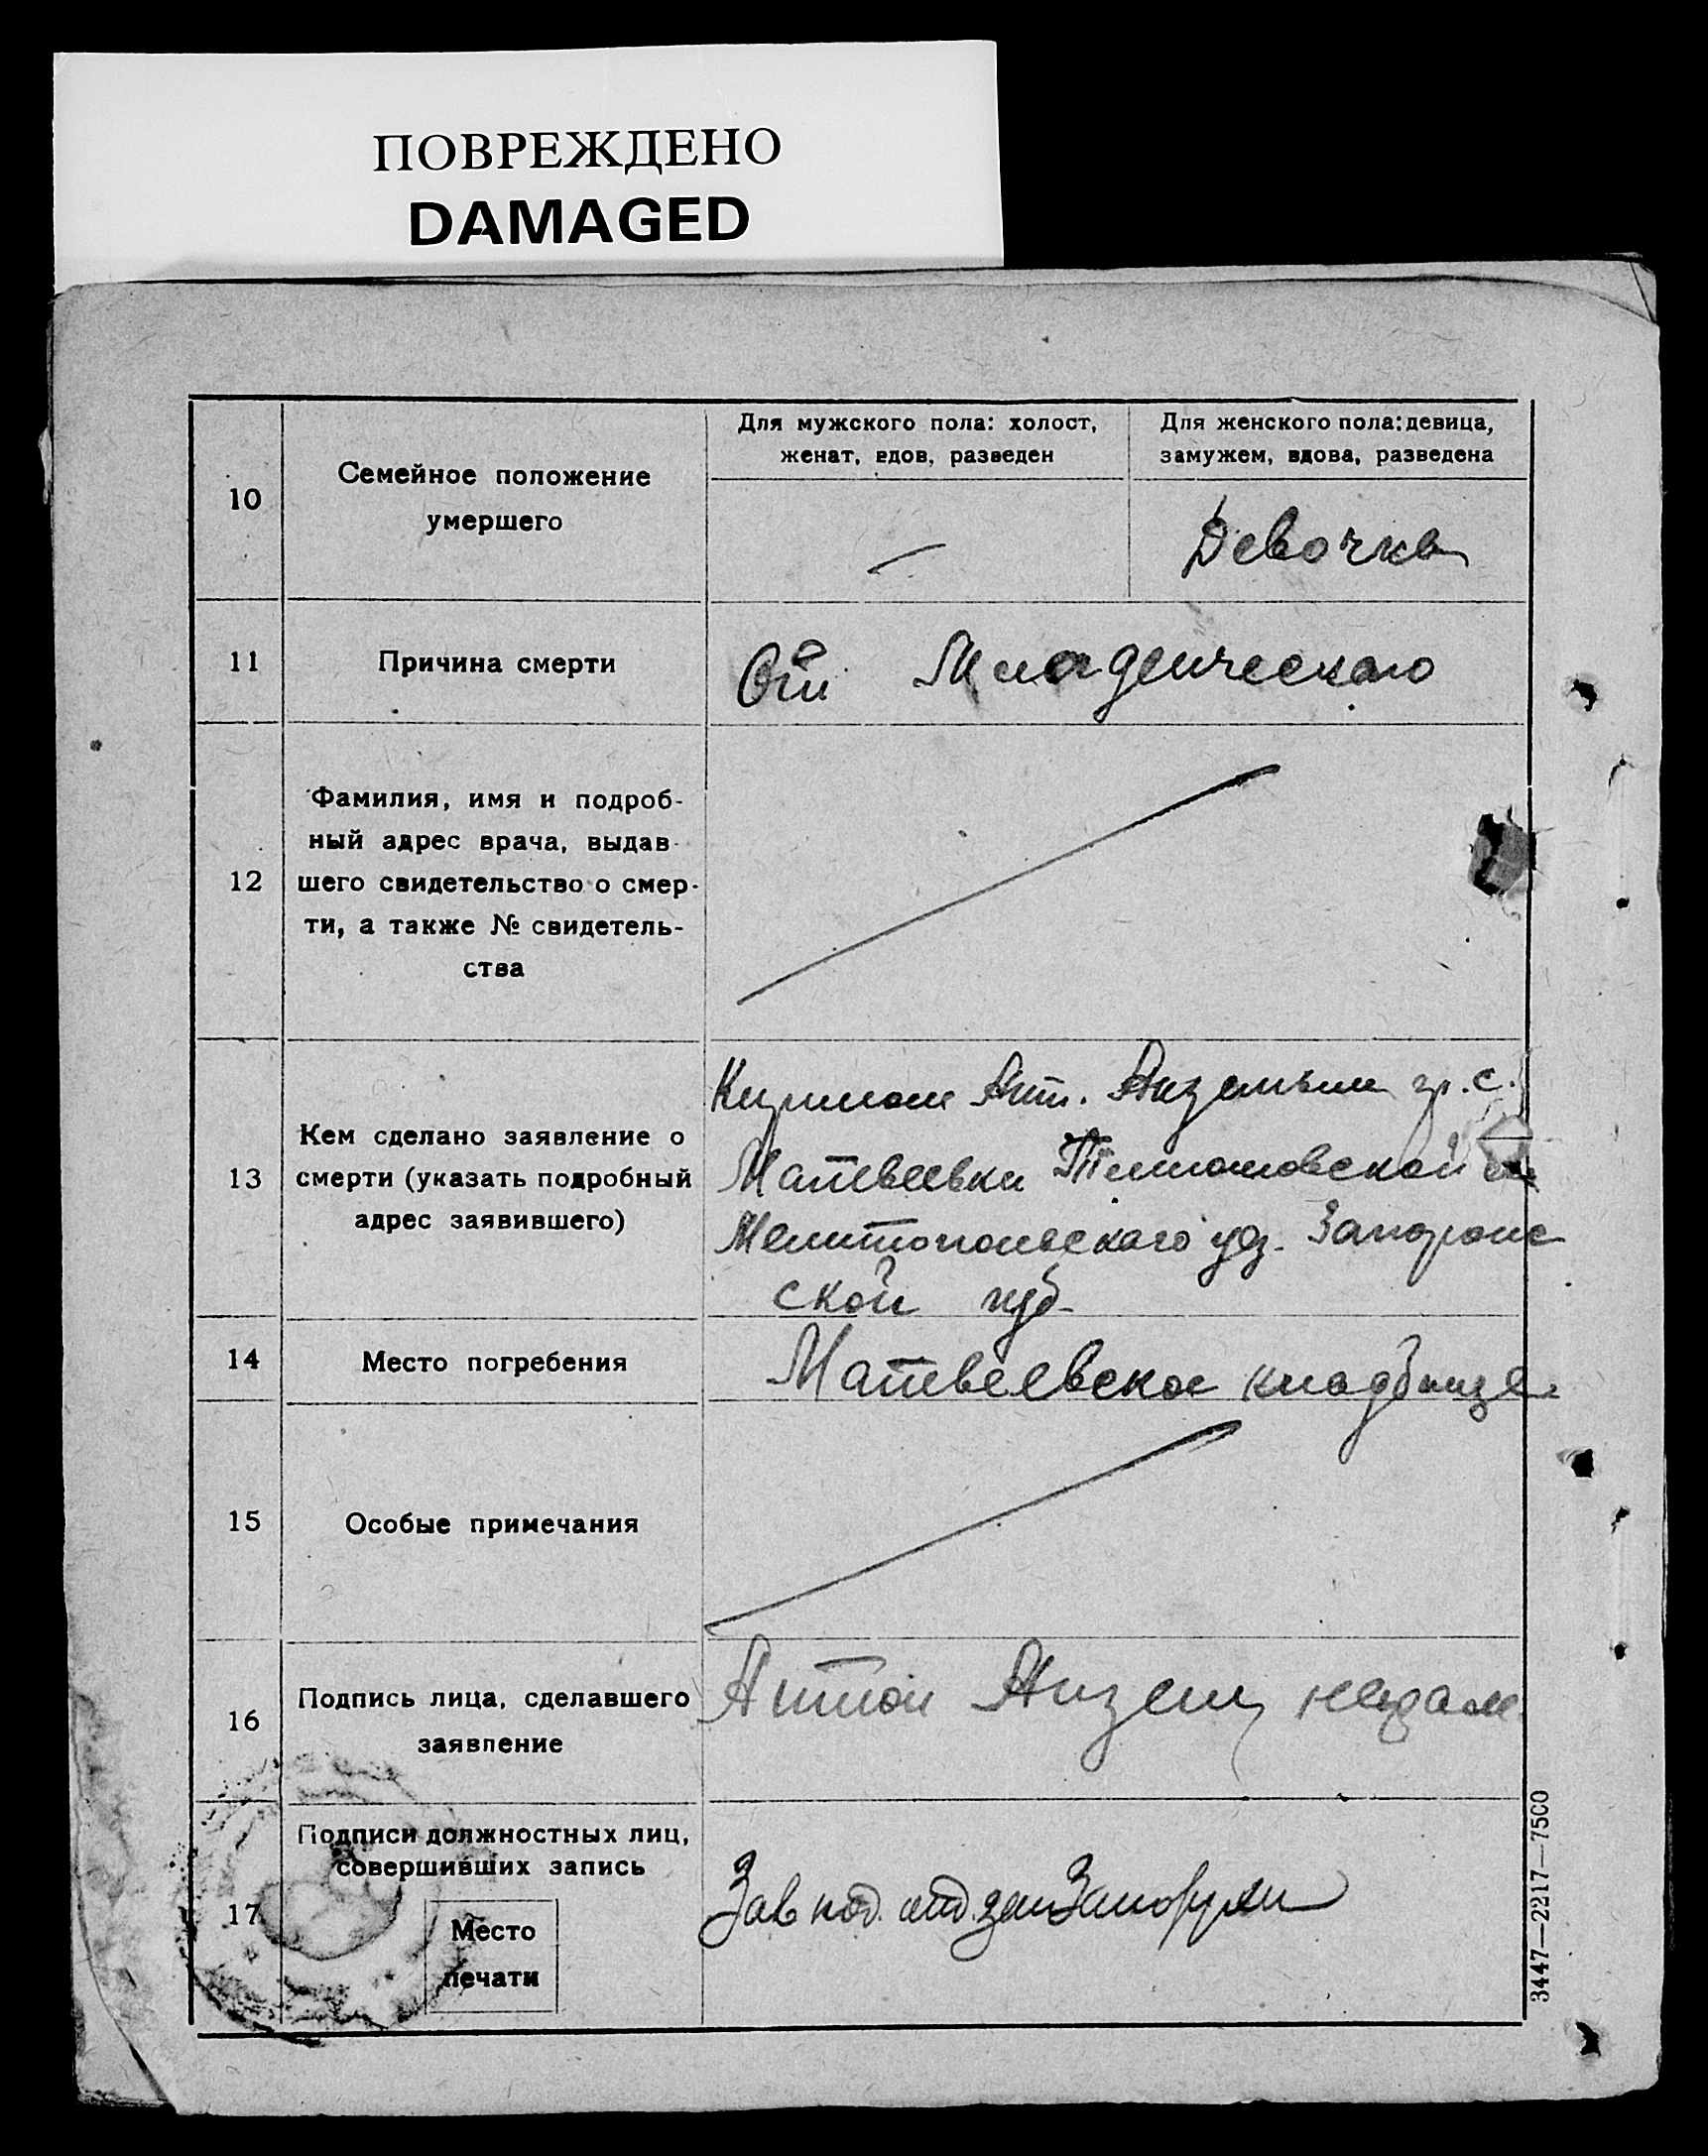 ПОВРЕЖДЕНО
DAMAGED
10
Семейное положение
умершего
Для мужского пола: холост,
женат, вдов, разведен
Для женского пола: девица,
замужем, вдова, разведена
—
Девочка
11
Причина смерти
От Младенческаго
12
Фамилия, имя и подроб-
ный адрес врача, выдав-
шего свидетельство о смер-
ти, а также № свидетель-
ства
13
Кем сделано заявление о
смерти (указать подробный
адрес заявившего)
Ант. гр. с.
Матвеевки
Мелитопольскаго уез. Запорож
ской губ
14
Место погребения
Матвеевское кладбище
15
Особые примечания
16
Подпись лица, сделавшего
заявление
Антон
17
Подписи должностных лиц,
совершивших запись
Место
печати
Зав под. отд.
3447—2217—7500